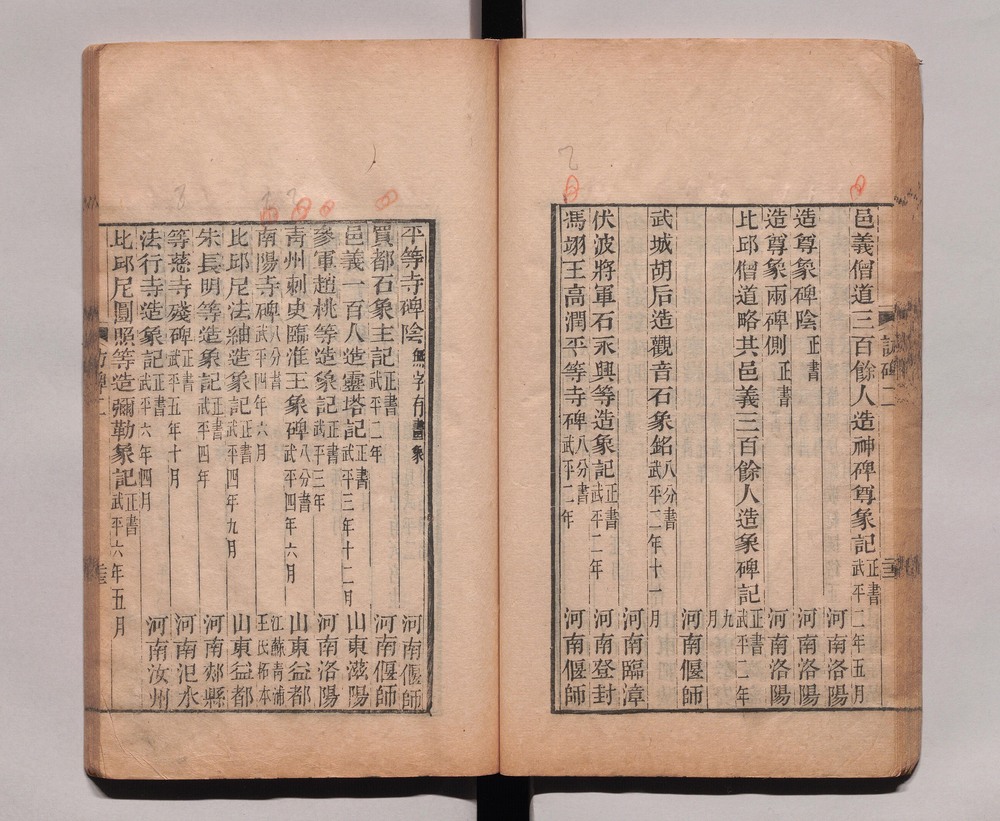 邑義僧道三百餘人造神碑尊象記正書武平二年五月
河南洛陽
造尊象碑陰正書
河南洛陽
造尊象兩碑側正書
河南洛陽
比邱僧道略共邑義三百餘人造象碑記正書武平二年九月
河南偃師
武城胡后造觀音石象銘八分書武平二年十一月
河南臨漳
伏波將軍石永興等造象記正書武平二年
河南登封
馮翊王高潤平等寺碑八分書武平二年
河南偃師
平等寺碑陰無字有畫象
河南偃師
買都石象主記正書武平二年
河南偃師
邑義一百人造靈塔記正書武平三年十二月
山東滋陽
參軍趙桃等造象記正書武平三年
河南洛陽
青州刺史臨淮王象碑八分書武平四年六月
山東益都
南陽寺碑八分書武平四年六月
江蘇青浦王氏柘本
比邱尼法紬造象記正書武平四年九月
山東益都
朱長明等造象記正書武平四年
河南郟縣
等慈寺殘碑正書武平五年十月
河南汜水
法行寺造象記正書武平六年四月
河南汝州
比邱尼圓照等造彌勒象記正書武平六年五月
訪碑二